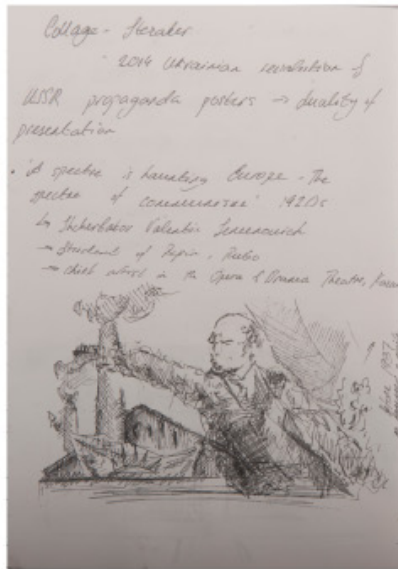 Collage -
2014 Ukrainian revolution &
USSR propaganda posters → duality of
presentation
• "A spectre is haunting Europe - The
spectre of communism" 1920s
by Shcherbakov Valentin
→ of Repin, Rubo
→ chief artist in the Opera & Drama Theatre,
1937